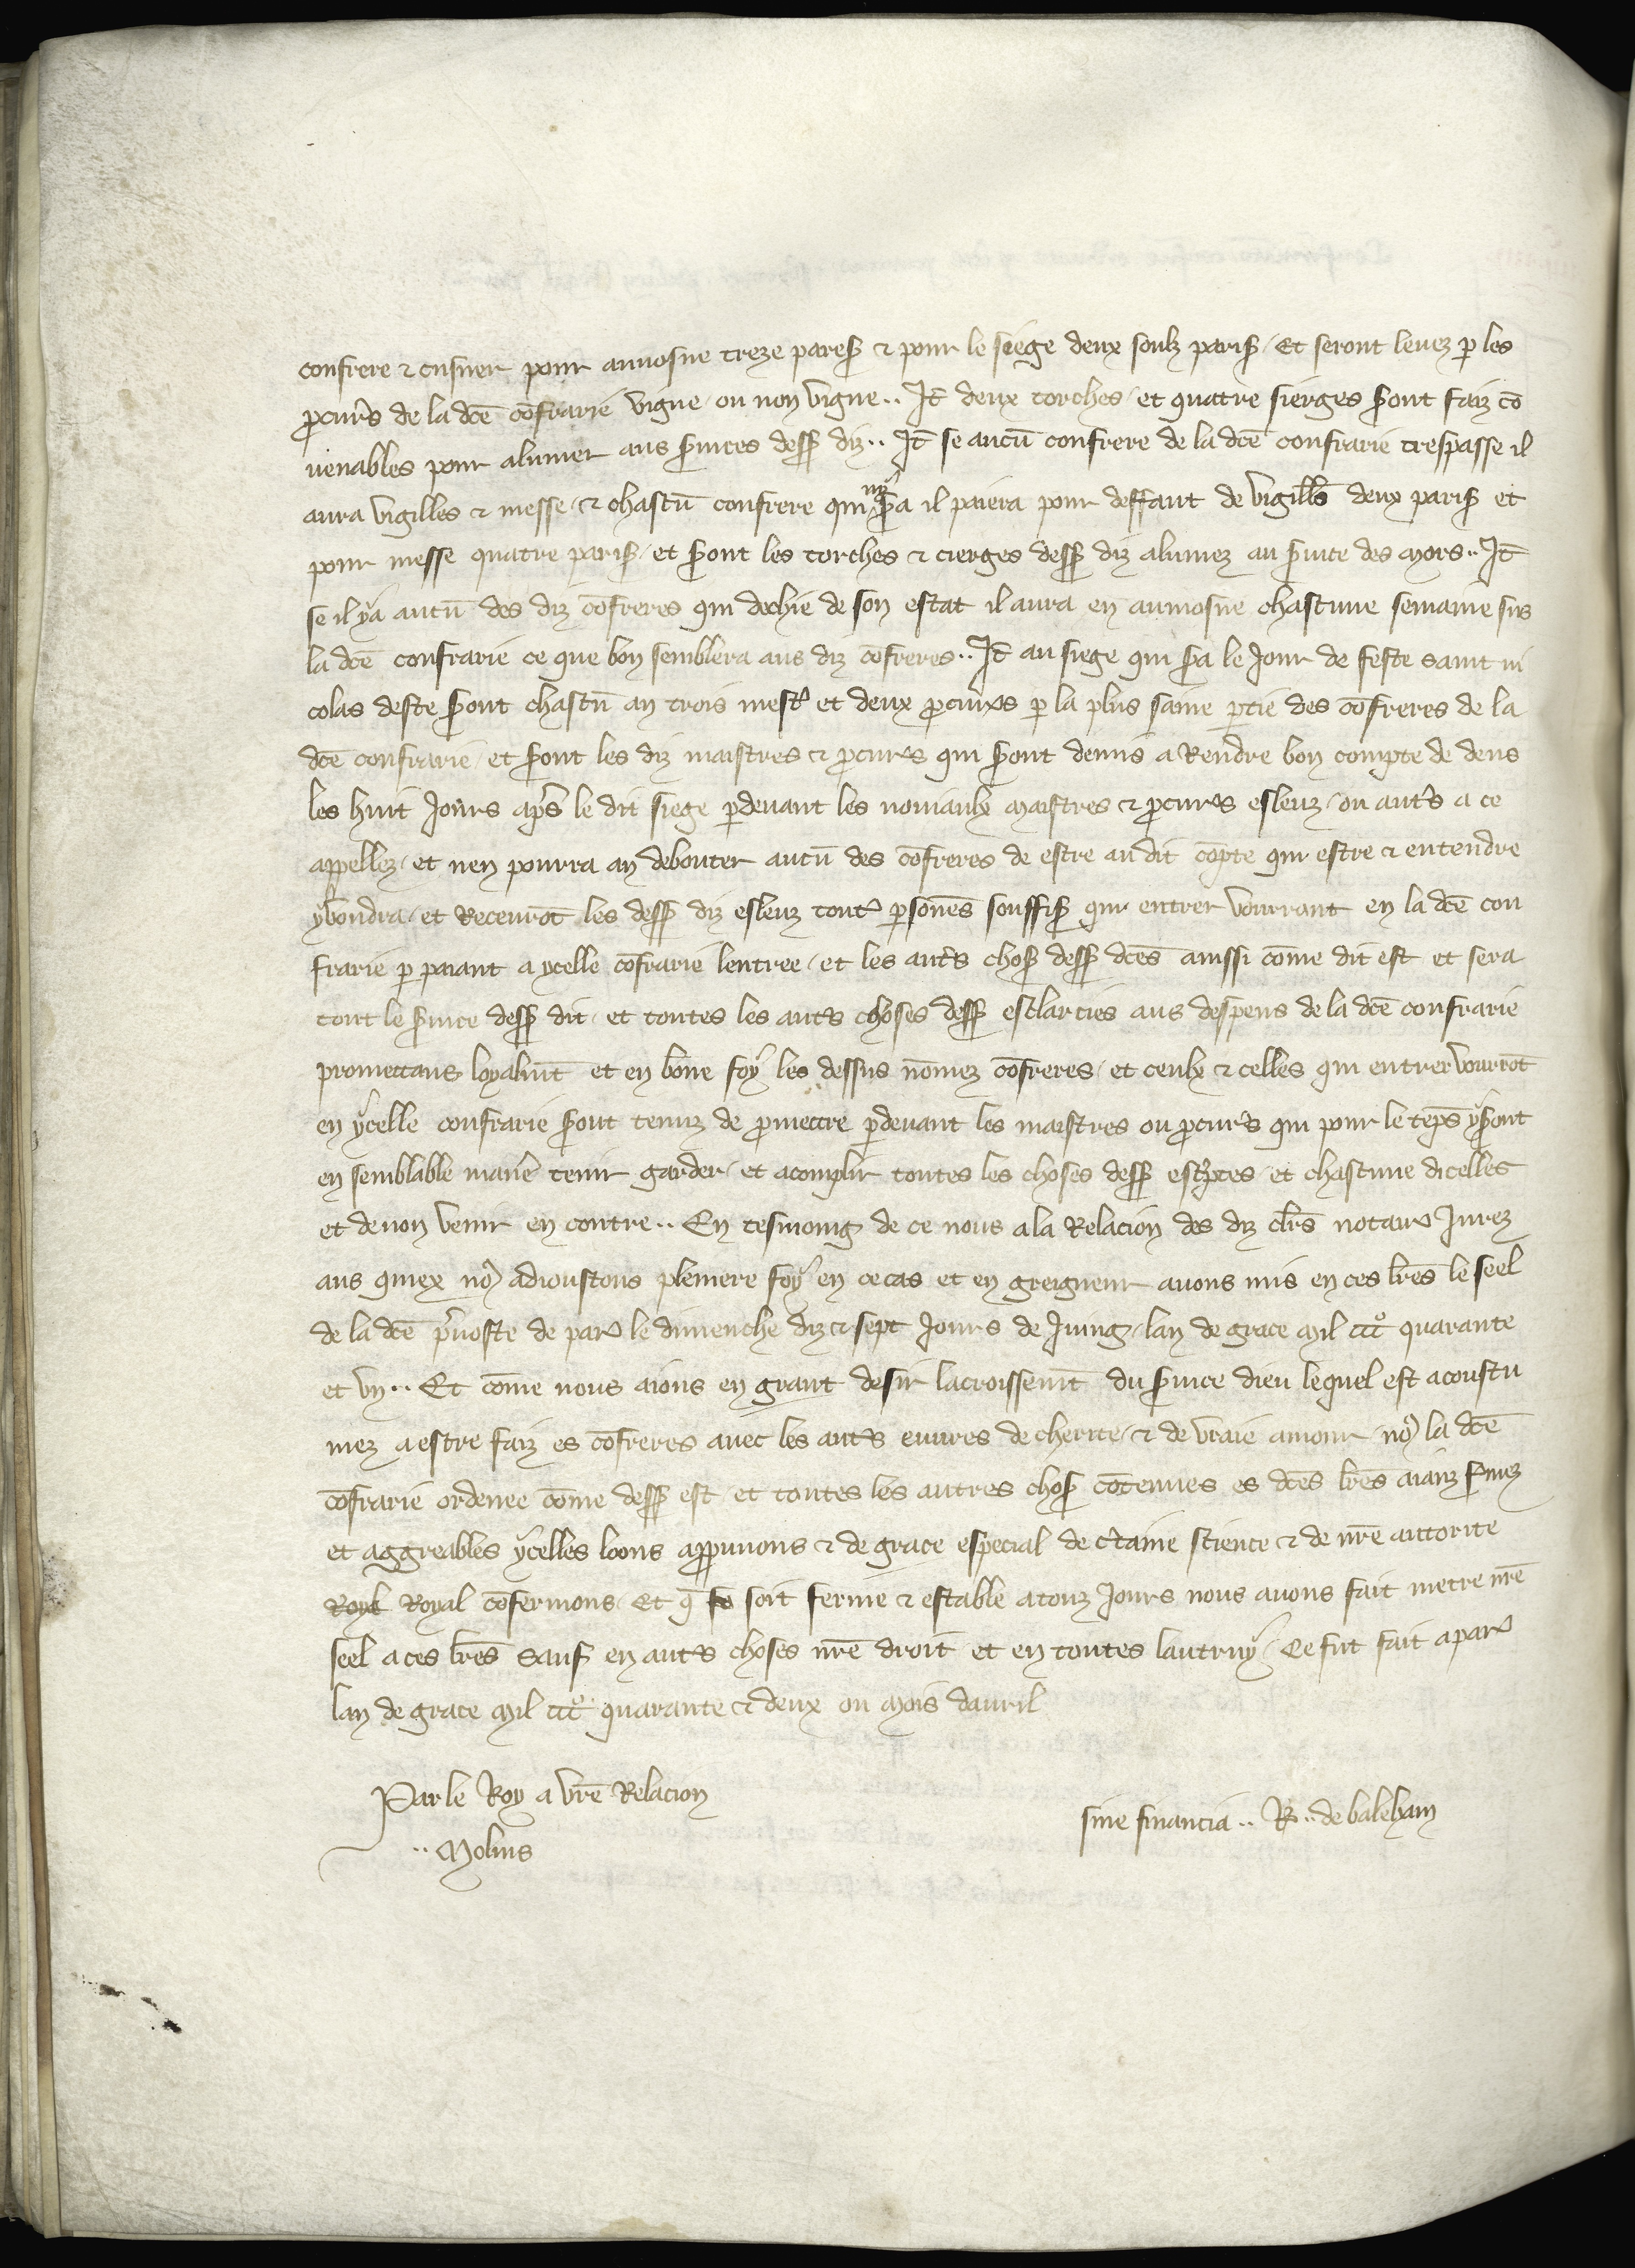 confrere ⁊ cusuer pour aumosne treze pareſ ⁊ pour le siege deux soulz pariſ / Et seront leuez ꝑ les
ꝓcur̃s de la dc̃e cõfrarie vigne ou non vigne .. It̃ deux torches / et quatre sierges ſont faiz cõ
uenables pour alumer aus ſuices deſſ diz .. It̃ se aucũ confrere de la dc̃e confrarie trespasse il
aura vigilles ⁊ messe / ⁊ chascũ confrere qui ny ſa il paiera pour deffaut de vigill̃s deux pariſ et
pour messe quatre pariſ / et ſont les torches ⁊ cierges deſſ diz alumez au ſuice des mors .. It̃
se il ya aucũ des diz cõfreres qui dechie de son estat il aura en aumosne chascune semaine sus
la dc̃e confrarie ce que bon semblera aus diz cõfreres .. It̃ au siege qui ſa le Jour de feste saint ni
colas deste ſont chascũ an trois mest᷒ et deux ꝓcur̃s ꝑ la plus saine ꝑtie des cõfreres de la
dc̃e confrarie / et ſont les diz maistres ⁊ ꝓcur̃s qui ſont demis a Rendre bon compte de dens
les huit Jours ap̃s le dit siege ꝑdeuant les nouiaulx maistres ⁊ ꝓcur̃s esleuz / ou aut̃s a ce
appellez / et nen pourra an debouter aucũ des cõfreres de estre au dit cõpte qui estre ⁊ entendre
y voudra / et Receurõt les deſſ diz esleuz tout᷒ ꝑsonẽs souffiſ qui entrer vourrant en la dc̃e con
frarie ꝑ paiant a ycelle cõfrarie lentree / et les aut̃s choſ deſſ dc̃es ainssi cõme dit est et sera
tout le ſuice deſſ dit / et toutes les aut̃s choses deſſ esclarcies aus despens de la dc̃e confrarie
promettans loyalmt̃ et en bõne foy les dessus nõmez cõfreres / et ceulx ⁊ celles qui entrer vourrõt
en ycelle confrarie ſont tenuz de ꝓmettre ꝑdeuant les maistres ou ꝓcur̃s qui pour le tẽps y ſont
en semblable manẽ tenir garder / et acomplir toutes les choses deſſ esc̃ptes / et chascune dicelles
et de non venir en contre .. En tesmoing de ce nous a la Relacion des diz cl̃rs notair᷒ Jurez
aus quiex nꝰ adioustons pleniere foy en ce cas et en greigneur auons mis en ces lr̃es le seel
de la dc̃e p̃uoste de par᷒ le dimenche diz ⁊ sept Jours de Juing / lan de grace mil cccͦ quarante
et vn .. Et cõme nous aions en grant desir lacroissemt̃ du ſuice dieu lequel est acoustu
mez a estre faiz es cõfreres auec les aut̃s euures de cherite / ⁊ de vraie amour / nꝰ la dc̃e
cõfrarie ordenee cõme deſſ est / et toutes les autres choſ cõtenues es dc̃es lr̃es aianz fermez
et aggreables ycelles loons appuuons ⁊ de grace especial de c̃taine science ⁊ de nr̃e autorite
Royl Royal cõfermons / Et q̃ so soit ferme ⁊ estable a touz Jours nous auons fait metre nr̃e
seel a ces lr̃es Sauf en aut̃s choses nr̃e droit et en toutes lautruy / Ce fut fait a par᷒
lan de grace mil cccͦ quarante ⁊ deux ou mois dauril
Par le Roy a vr̃e Relacion
.. Molins
sine financia .. R .. de baleham